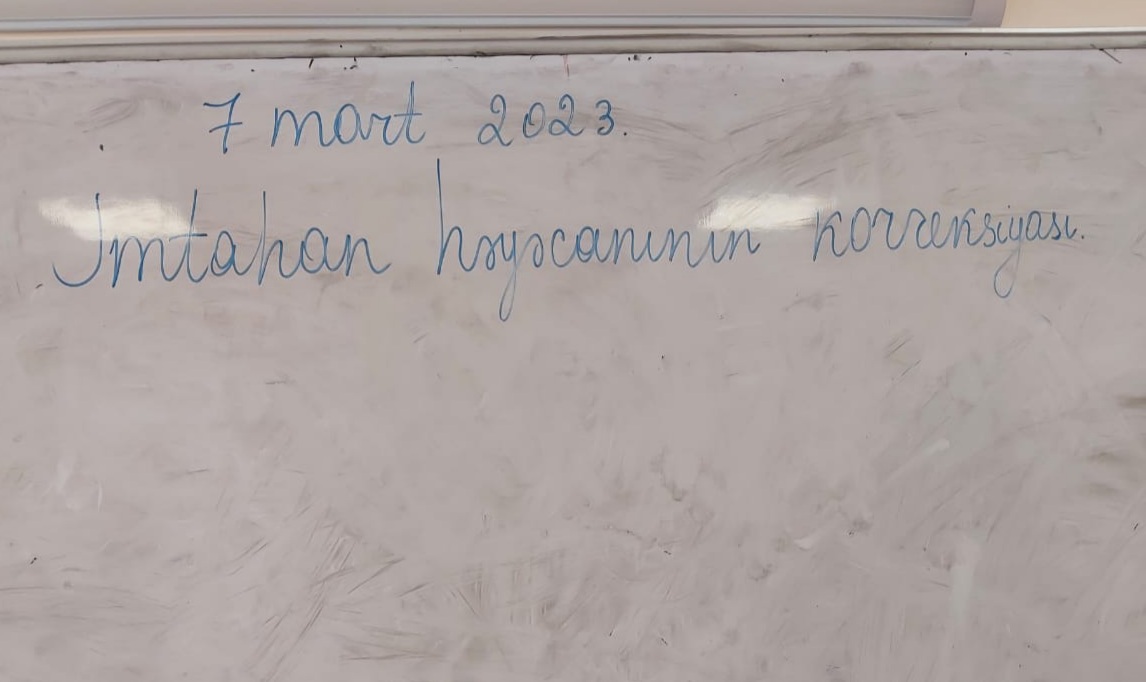 7 mart 2023.
İmtahan həyəcanının korreksiyası.